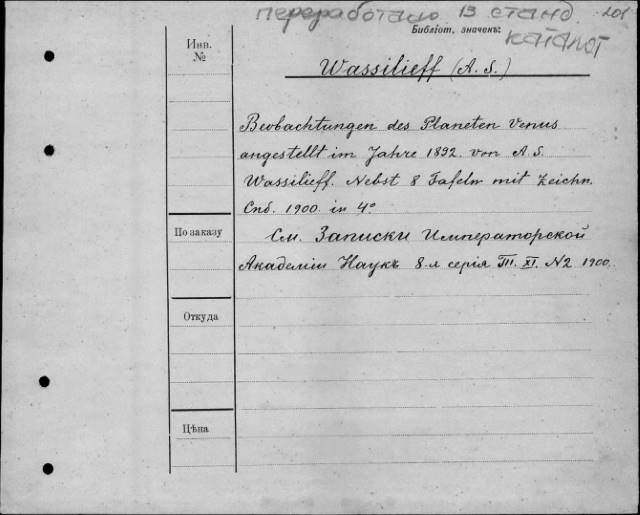 переработано в станд. 201
Библіот. значенъ:
каталог
Инв.
№
Wassilieff (A. S.)
Beobachtungen des Planeten Venus
angestellt im Jahre 1892. von A. S.
Wassilieff. Nebst 8 Tafeln mit Zeichn.
Спб. 1900. in 4º
По заказу
См. Записки Императорской
Академіи Наукъ 8-я серія Т. XI. №2 1900.
Откуда
Цѣна